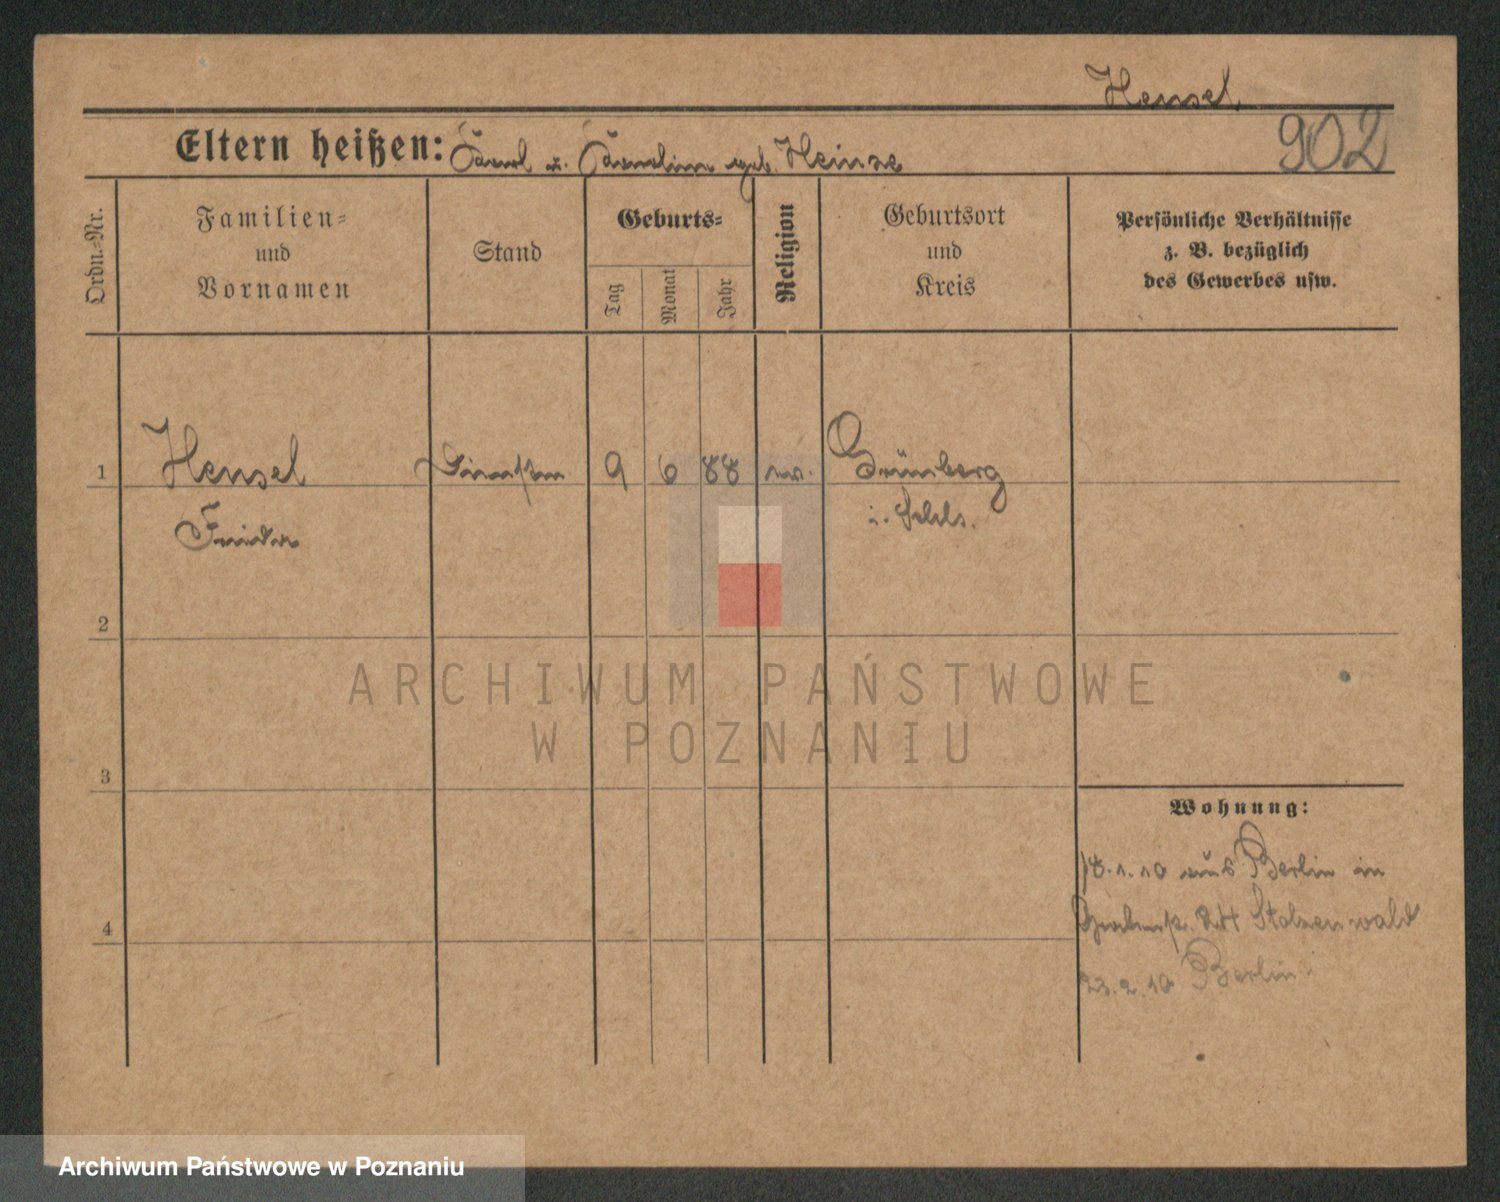 Hensel
902
Eltern heißen: Karl u. Karolin geb. Heinze
Ordn.-Nr.
Familien=
und
Vornamen
Stand
Geburts=
Tag
Monat
Jahr
Religion
Geburtsort
und
Kreis
Persönliche Verhältnisse
z. B. bezüglich
des Gewerbes usw.
1 Hensel 9 6 88 ev. Grünberg
Frieda i. Schls.
2
3
4
Wohnung:
18.1.10 aus Berlin in
24 Stolzenwald
23.2.10 Berlin
ARCHIWUM PAŃSTWOWE
W POZNANIU
Archiwum Państwowe w Poznaniu